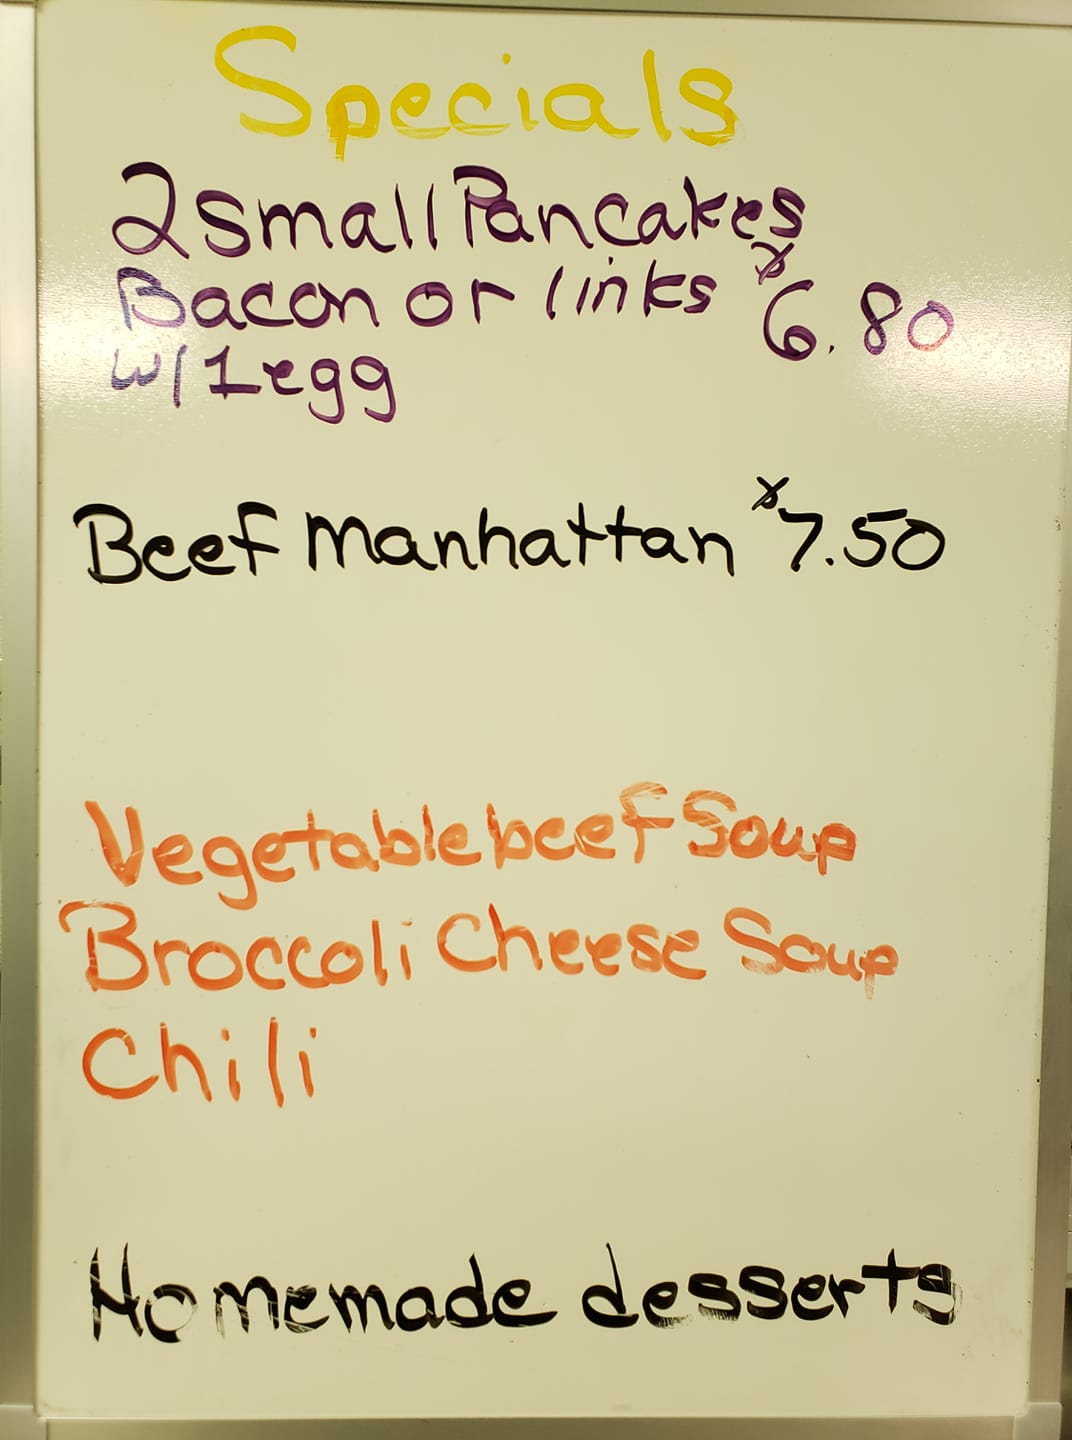 Specials
2 Small Pancakes
Bacon or links $6.80
w/ 1 egg
Beef Manhattan $7.50
Vegetable beef Soup
Broccoli Cheese Soup
Chili
Homemade desserts